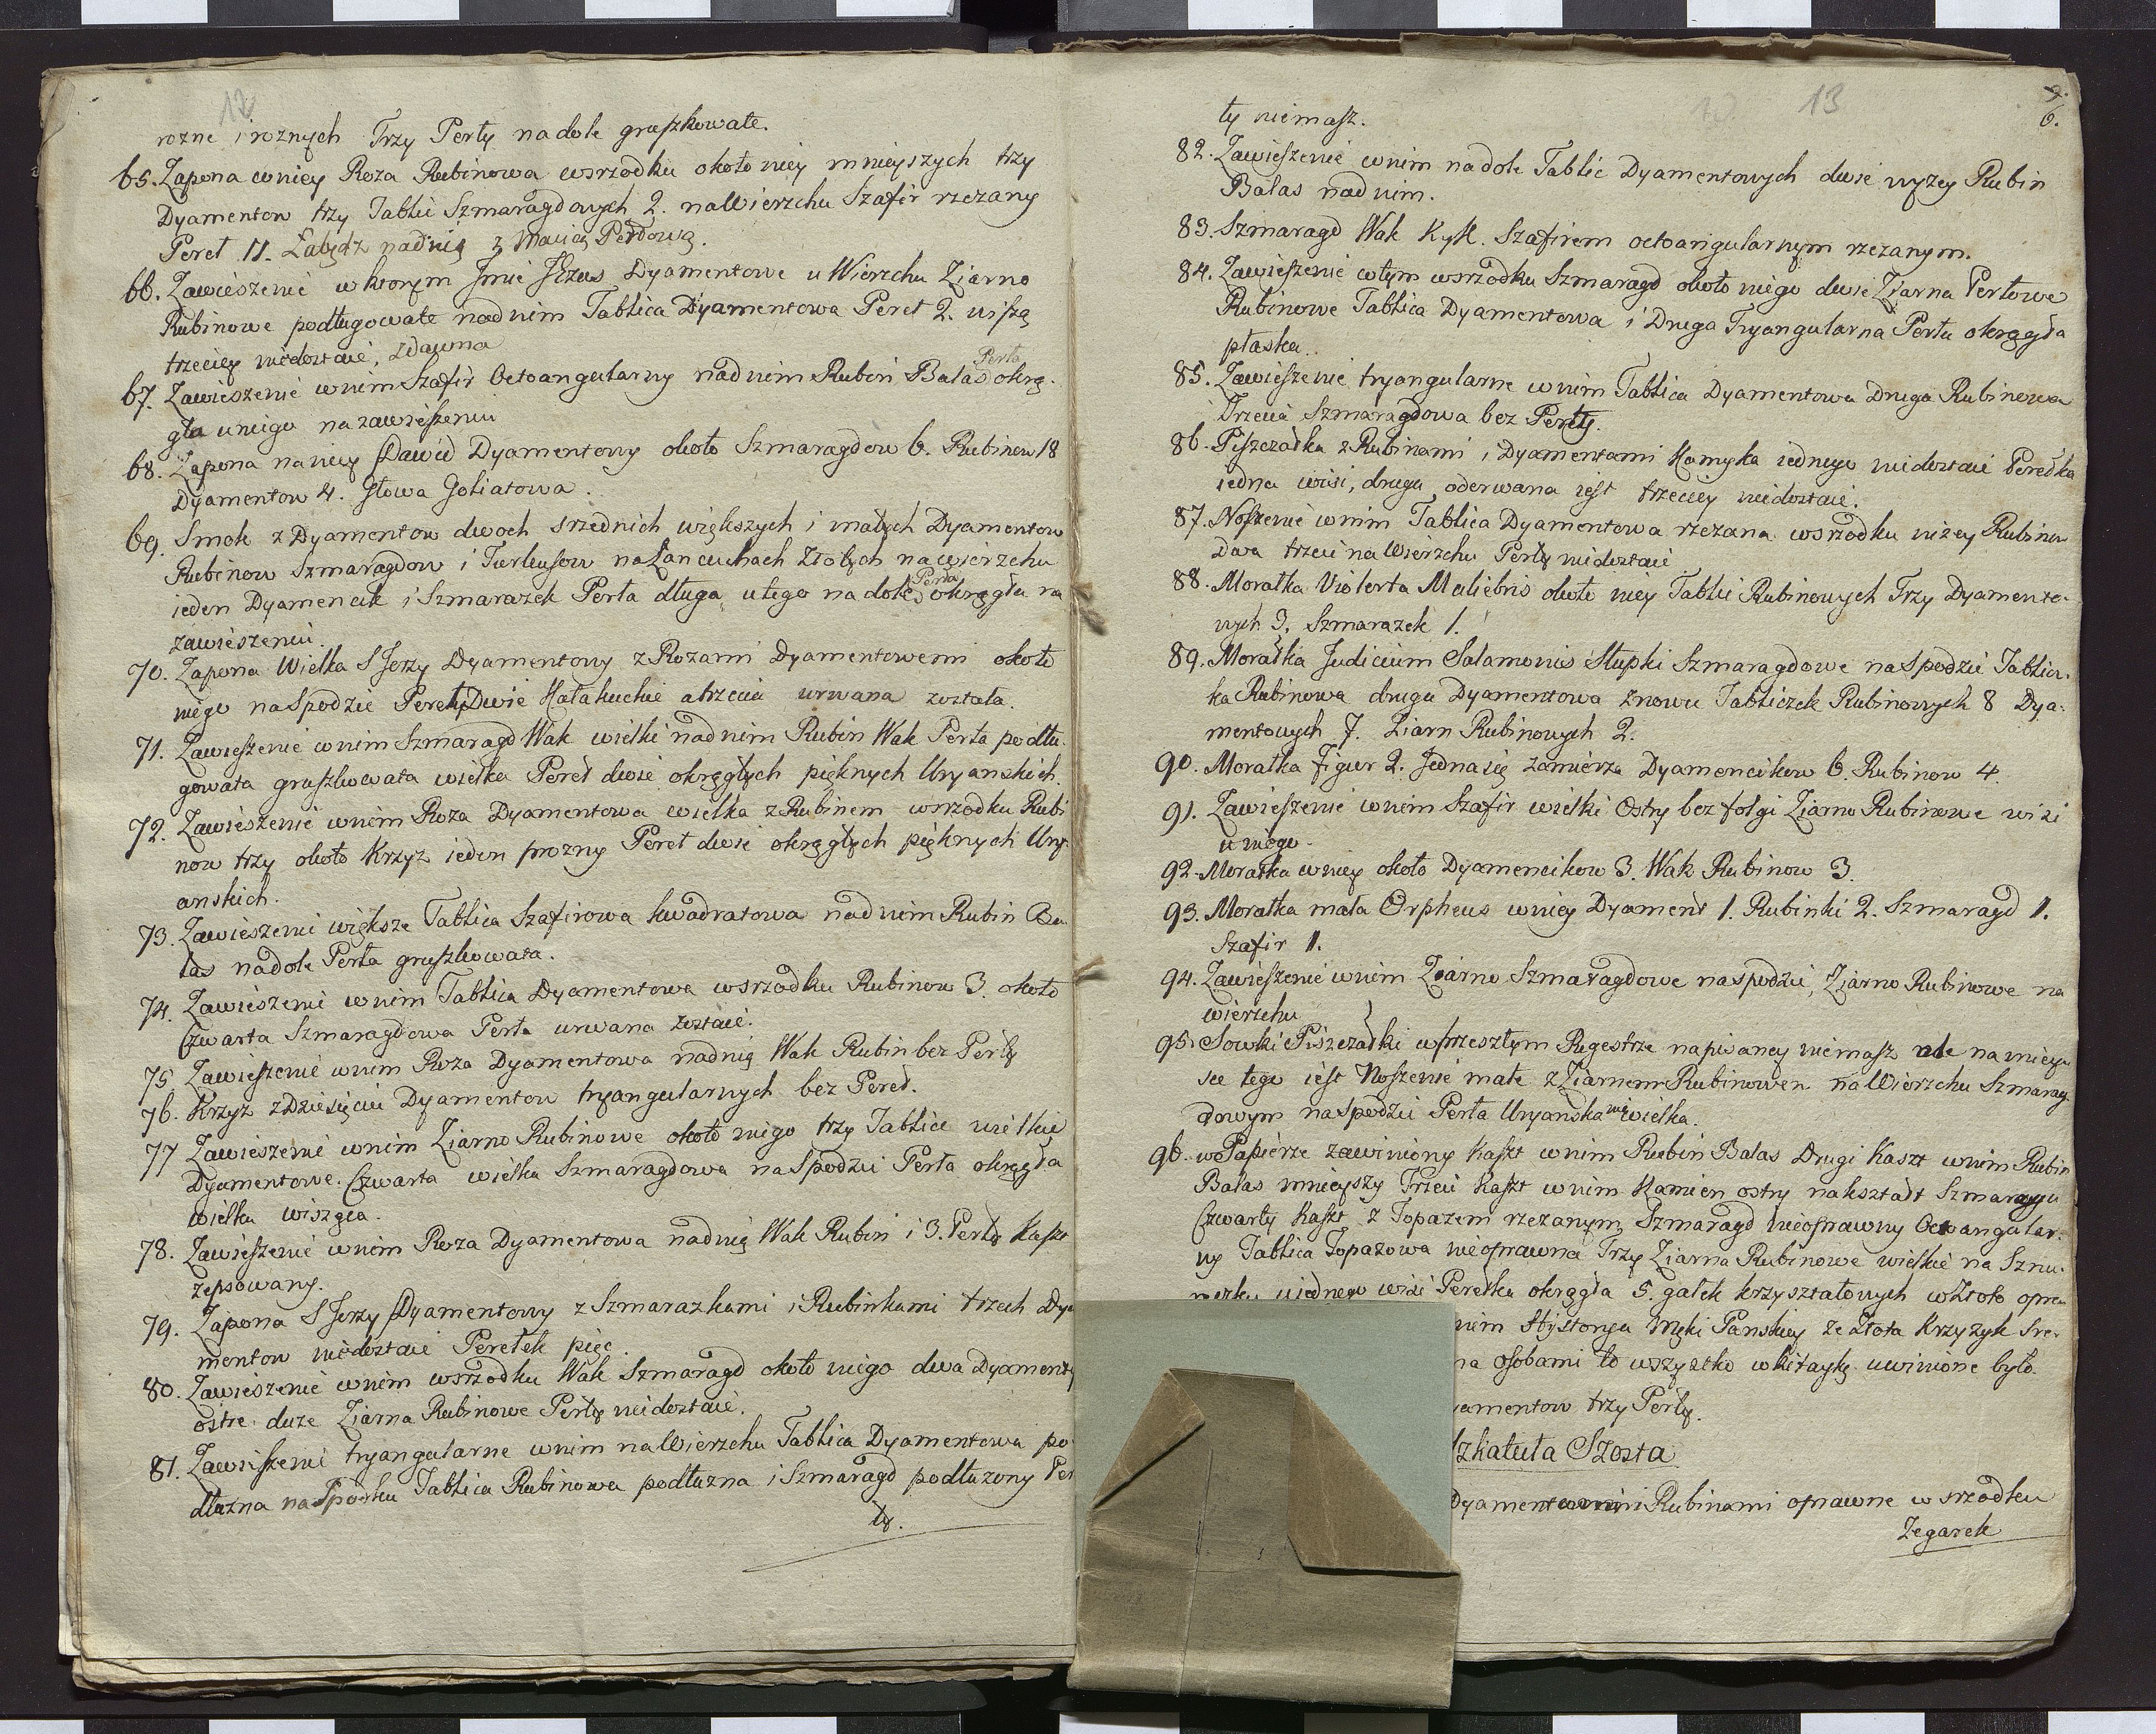 12
rozne i roznych Trzy Perły na dole gruszkowate.
65. Zapona w niey Roza Rubinowa wsrzodku około niey mnieyszych trzy
Dyamentow trzy Tablic Szmaragdowych 2. na Wierzchu Szafir rzezany
Pereł 11. Łabędz nad nią z Macicą Perłową.
66. Zawieszenie w ktorym Jmie JEzus Dyamentowe u Wierzchu Ziarno
Rubinowe podługowate nad nim Tablica Dyamentowa Pereł 2. wiszą
trzeciey niedostaie, zdawna
67. Zawieszenie w nim Szafir Octoangularny nad nim Rubin Balas Perła okrą-
gła u niego na zawieszeniu
68. Zapona na niey Dawid Dyamentowy około Szmaragdow 6. Rubinow 18
Dyamentow 4. Głowa Goliatowa.
69. Smok z Dyamentow dwoch srzednich większych i małych Dyamentow
Rubinow Szmaragdow i Turkusow na Łancuchach Złotych na wierzchu
ieden Dyamencik i Szmarazek Perła długa u tego na dole, Perła okrągła na
zawieszeniu.
70. Zapona Wielka S Jerzy Dyamentowy z Rozami Dyamentowemi około
niego na Spodzie Perły Dwie Kałakuckie a trzecia urwana została.
71. Zawieszenie w nim Szmaragd Wak wielki nad nim Rubin Wak Perła podłu-
gowata gruszkowata wielka Pereł dwie okrągłych pięknych Uryanskich.
72. Zawieszenie w nim Roza Dyamentowa wielka z Rubinem wsrzodku Rubi
now trzy około Krzyz ieden prozny Pereł dwie okrągłych pięknych Ury-
anskich.
73. Zawieszenie większe Tablica Szafirowa kwadratowa nad nim Rubin Ba-
las na dole Perła gruszkowata.
74. Zawieszenie w nim Tablica Dyamentowa wsrzodku Rubinow 3. około
Czwarta Szmaragdowa Perła urwana zostaie.
75. Zawieszenie w nim Roza Dyamentowa nad nią Wak Rubin bez Perły
76. Krzyz z Dziesięciu Dyamentow tryangularnych bez Pereł.
77 Zawieszenie w nim Ziarno Rubinowe około niego trzy Tablice wielkie
Dyamentowe. Czwarta wielka Szmaragdowa na Spodzie Perła okrągła
wielka wisząca.
78. Zawieszenie w nim Roza Dyamentowa nad nią Wak Rubin i 3. Perły Kaszt
zepsowany.
79. Zapona S Jerzy Dyamentowy z Szmarazkami i Rubinkami trzech Dya
mentow niedostaie Perełek pięc.
80. Zawieszenie w nim wsrzodku Wak Szmaragd około niego dwa Dyamenty
ostre. duze Ziarna Rubinowe Perły niedostaie.
81. Zawieszenie tryangularne w nim na Wierzchu Tablica Dyamentowa po
dłuzna na Spodku Tablica Rubinowa podłuzna i Szmaragd podłuzony Per
ły.
13
6.
ły niemasz.
82. Zawieszenie w nim na dole Tablic Dyamentowych dwie wyzey Rubin
Balas nad nim.
83. Szmaragd Wak Kyk. Szafirem octoangularnym rzezanym.
84. Zawieszenie w tym wsrzodku Szmaragd około niego dwie Ziarna Perłowe
Rubinowe Tablica Dyamentowa i Druga Tryangularna Perła okrągła
płaska.
85. Zawieszenie tryangularne w nim Tablica Dyamentowa Druga Rubinowa
Trzecia Szmaragdowa bez Perły.
86. Piszczałka z Rubinami i Dyamentami Kamyka iednego niedostaie Perełka
iedna wisi, druga oderwana iest trzeciey niedostaie.
87. Noszenie w nim Tablica Dyamentowa rzezana wsrzodku nizey Rubinow
dwa trzeci na Wierzchu Perły niedostaie
88. Morałka Violerta Muliebris około niey Tablic Rubinowych Trzy Dyamento-
wych 3. Szmarazek 1.
89. Morałka Judicium Salamonis Słupki Szmaragdowe na Spodzie Tablicz-
ka Rubinowa druga Dyamentowa znowu Tabliczek Rubinowych 8 Dya-
mentowych 7. Ziarn Rubinowych 2.
90. Morałka figur 2. Jedna się zamierza Dyamencikow 6. Rubinow 4
91. Zawieszenie w nim Szafir wielki Ostry bez folgi Ziarno Rubinowe wisi
u niego.
92. Morałka w niey około Dyamencikow 3. Wak Rubinow 3.
93. Morałka mała Orpheus w niey Dyament 1. Rubinki 2. Szmaragd 1.
Szafir 1.
94. Zawieszenie w nim Ziarno Szmaragdowe na spodzie, Ziarno Rubinowe na
wierzchu
95. Sowki Piszczałki w przeszłym Regestrze napisaney niemasz ale na miey-
sce tego iest Noszenie małe z Ziarnem Rubinowem na Wierzchu Szmarag-
dowym na Spodzie Perła Uryanska niewielka.
96. w Papierze zawiniony Kaszt w nim Rubin Balas Drugi Kaszt w nim Rubin
Balas mnieyszy Trzeci Kaszt w nim Kamien ostry nakształt Szmaragu
Czwarty Kaszt z Topazem rzezanym Szmaragd nieoprawny Octoangular-
ny Tablica Topazowa nieoprawna Trzy Ziarna Rubinowe wielkie na Sznu-
reczku u iednego wisi Perełka okrągła 5. gałek krzyształowych w Złoto opra-
nim Hystorya Męki Panskiey ze Złota Krzyzyk Sre-
na osobami to wszystko w kitaykę uwinione było.
yamentow trzy Perły.
Szkatuła Szosta
Dyamentami i Rubinami oprawne w srzodku
Zegarek